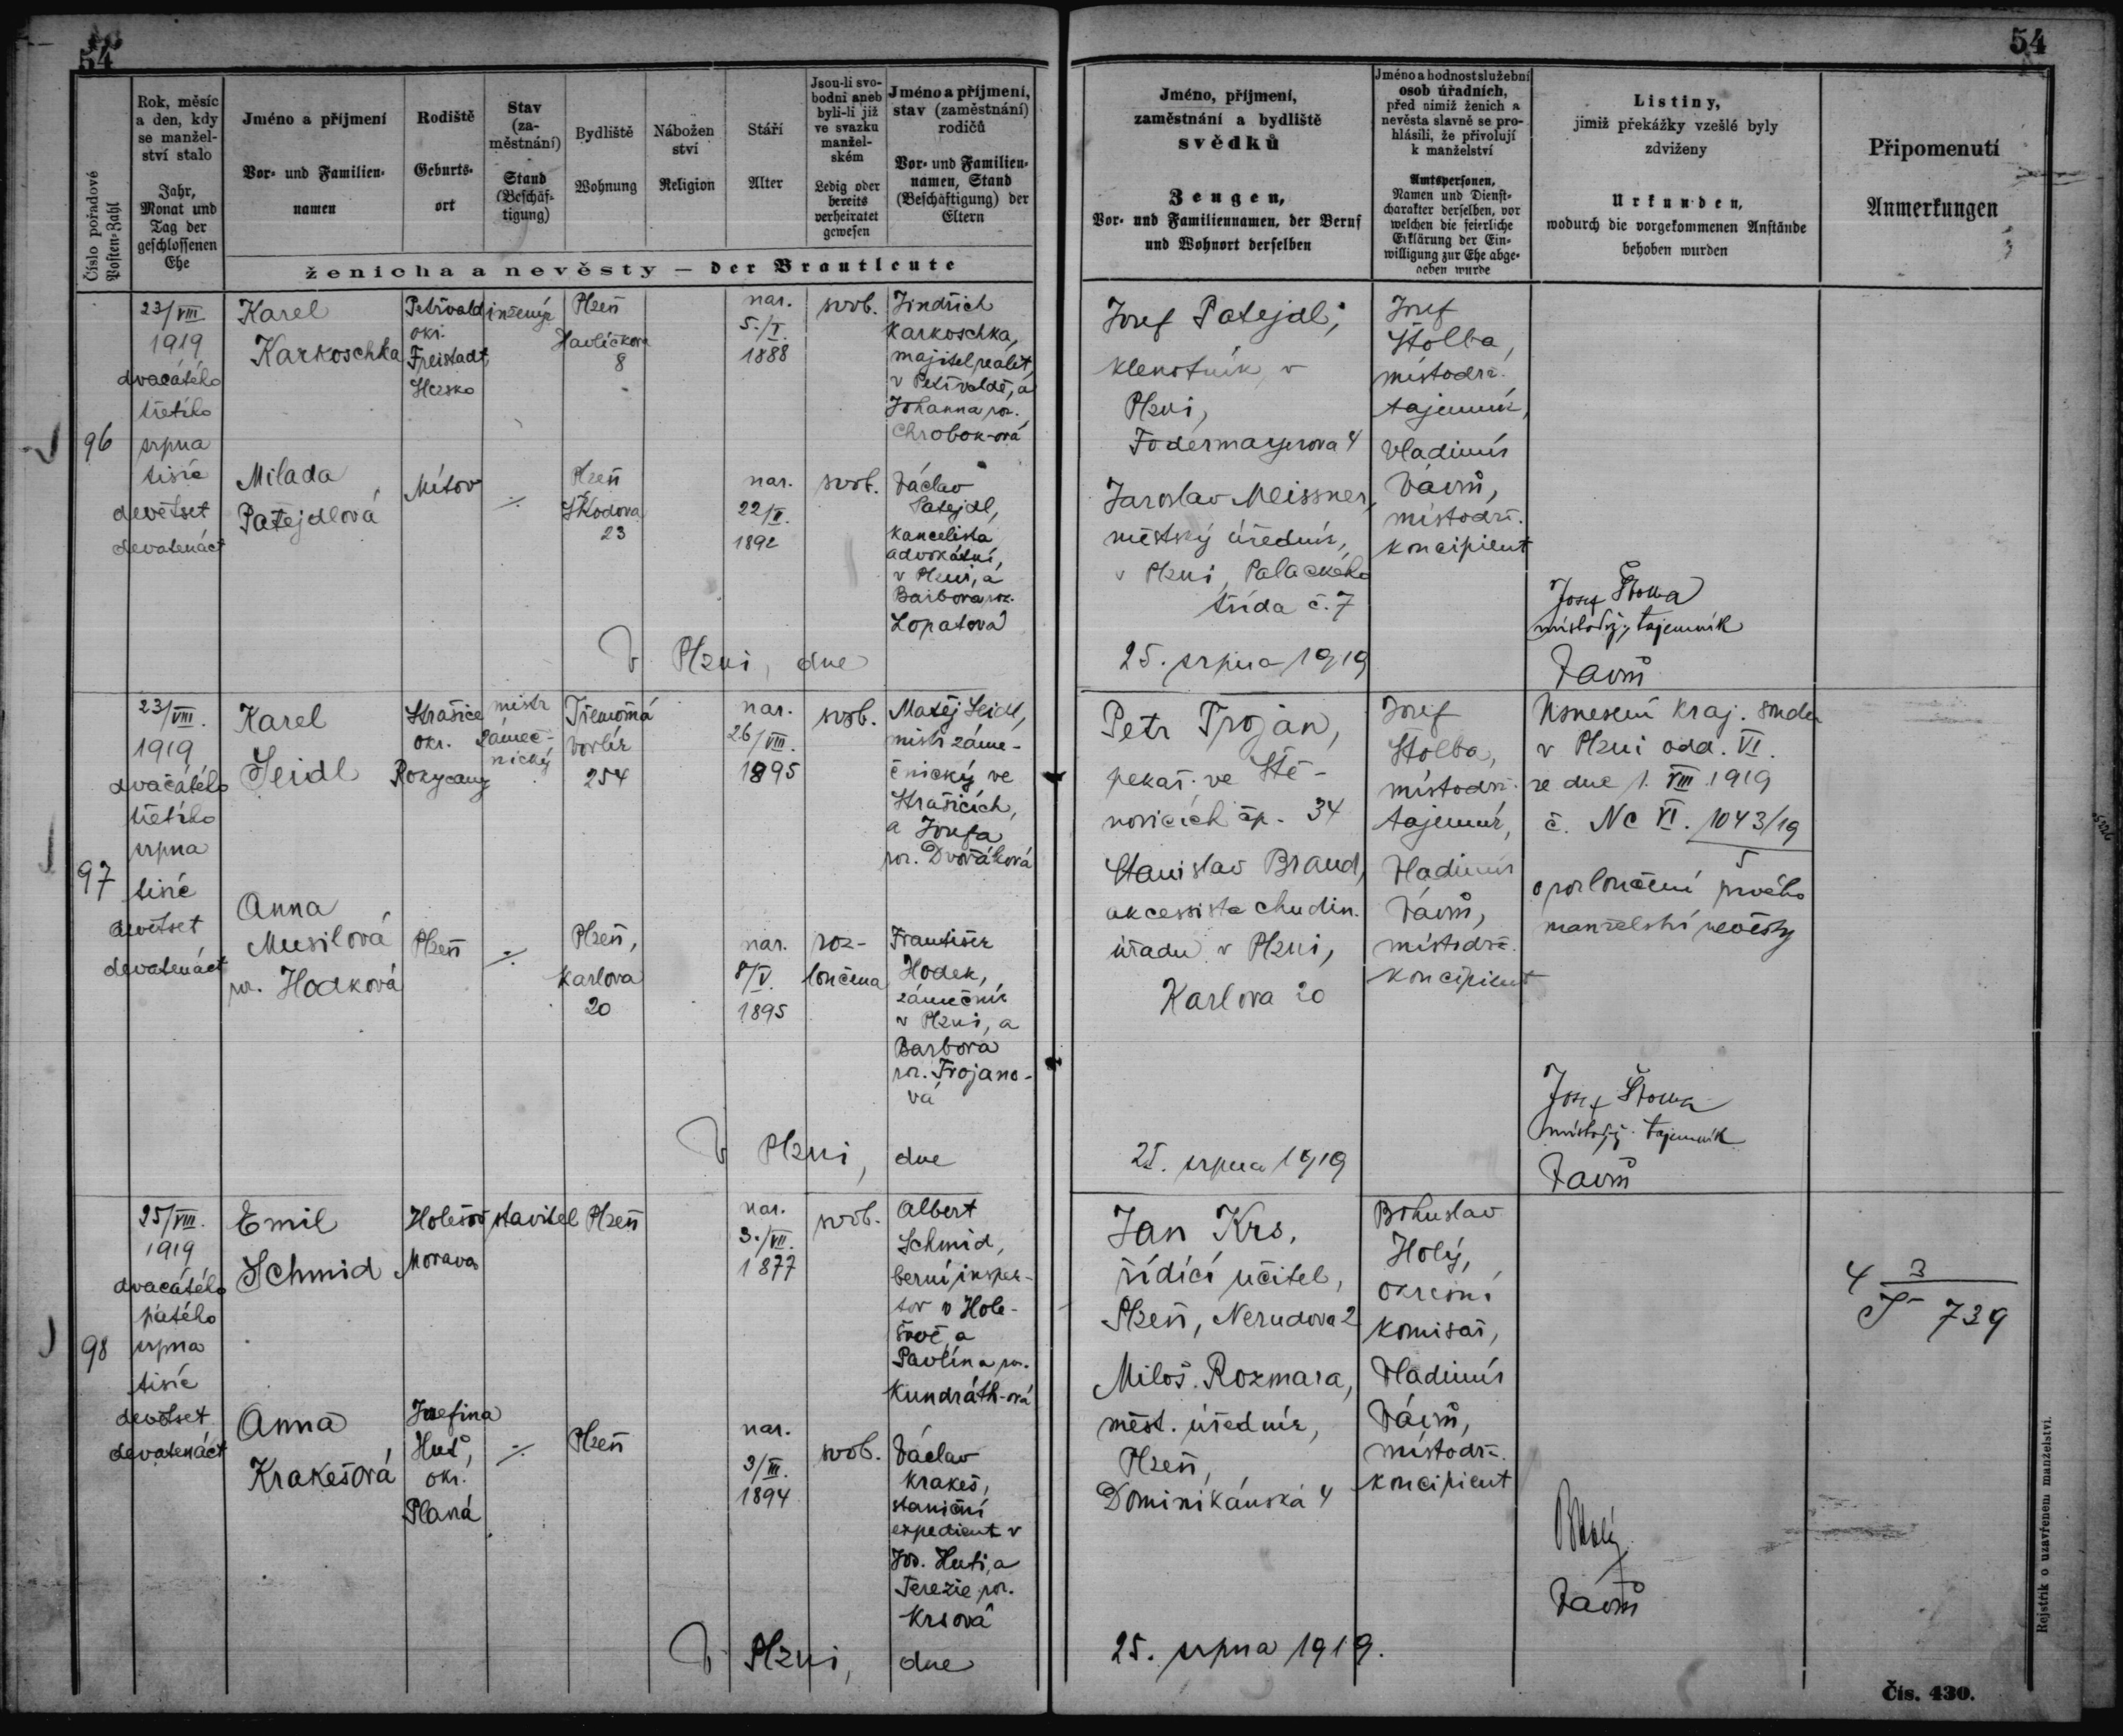 54
54
Číslo pořadové
Posten-Zahl
Rok, měsíc
a den, kdy
se manžel-
ství stalo
Jahr,
Monat und
Tag der
geschlossenen
Ehe
Jméno a příjmení
Vor- und Familien-
namen
Rodiště
Geburts-
ort
Stav
(za-
městnání)
Stand
(Beschäf-
tigung)
Bydliště
Wohnung
Nábožen
ství
Religion
Stáří
Alter
Jsou-li svo-
bodni aneb
byli-li již
ve svazku
manžel-
ském
Ledig oder
bereits
verheiratet
gewesen
Jméno a příjmení,
stav (zaměstnání)
rodičů
Vor- und Familien-
namen, Stand
(Beschäftigung) der
Eltern
ženicha a nevěsty — der Brautleute
Jméno, příjmení,
zaměstnání a bydliště
svědků
Zeugen,
Vor- und Familiennamen, der Beruf
und Wohnort derselben
Jméno a hodnost služební
osob úřadních,
před nimiž ženich a
nevěsta slavně se pro-
hlásili, že přivolují
k manželství
Amtspersonen,
Namen und Dienst-
charakter derselben, vor
welchen die feierliche
Erklärung der Ein-
willigung zur Ehe abge-
geben wurde
Listiny,
jimiž překážky vzešlé byly
zdviženy
Urkunden,
wodurch die vorgekommenen Anstände
behoben wurden
Připomenutí
Anmerkungen
96
23/VIII
1919
dvacátého
třetího
srpna
tisíc
devětset
devatenáct
Karel
Karkoschka
Petřvald
okr.
Freistadt
Slezsko
inženýr
Plzeň
Havlíčkova
8
nar.
5./I.
1888
svob.
Jindřich
Karkoschka,
majitel realit,
v Petřvaldě, a
Johanna roz.
Chrobok-ová
Milada
Patejdlová
Mítov
./.
Plzeň
Škodova
23
nar.
22/II.
1892
svob.
Václav
Patejdl,
kancelista
advokátní,
v Plzni, a
Barbora roz.
Lopatová
Josef Patejdl,
klenotník, v
Plzni,
Fodermayerova 4
Jaroslav Meissner,
městský úředník,
v Plzni, Palackého
třída č. 7
Josef
Štolba,
místodrž.
tajemník,
Vladimír
Vávrů,
místodrž.
koncipient
Josef Štolba
místodrž. tajemník
Vávrů
V Plzni, dne 25. srpna 1919
97
23/VIII.
1919
dvacátého
třetího
srpna
tisíc
devětset
devatenáct
Karel
Seidl
Strašice
okr.
Rokycany
mistr
zámeč-
nický
Třemošná
Vorlík
254
nar.
26/VIII.
1895
svob.
Matěj Seidl,
mistr záme-
čnický ve
Strašicích,
a Josefa
roz. Dvořáková
Anna
Musilová
roz. Hodková
Plzeň
./.
Plzeň,
Karlova
20
nar.
8/V.
1895
roz-
loučena
František
Hodek,
zámečník
v Plzni, a
Barbora
roz. Trojano-
vá
Petr Trojan,
pekař ve Ště-
novicích čp. 34
Stanislav Brand,
akcessista chudin.
úřadu v Plzni,
Karlova 20
Josef
Štolba,
místodrž.
tajemník,
Vladimír
Vávrů,
místodrž.
koncipient
Usnesení kraj. soudu
v Plzni odd. VI.
ze dne 1. VIII. 1919
č. Nc VI. 1043/19
5
o rozloučení prvého
manželství nevěsty
Josef Štolba
místodrž. tajemník
Vávrů
V Plzni, dne 25. srpna 1919
98
25/VIII.
1919
dvacátého
pátého
srpna
tisíc
devětset
devatenáct
Emil
Schmid
Holešov
Morava
stavitel
Plzeň
nar.
3./VII.
1877
svob.
Albert
Schmid,
berní inspek-
tor v Hole-
šově, a
Pavlína roz.
Kundráth-ová
Anna
Krakešová
Josefina
Huť,
okr.
Planá
./.
Plzeň
nar.
3/III.
1894
svob.
Václav
Krakeš,
staniční
expedient v
Jos. Huti, a
Terezie roz.
Krsová
Jan Krs,
řídící učitel,
Plzeň, Nerudova 2
Miloš Rozmara,
měst. úředník,
Plzeň,
Dominikánská 4
Bohuslav
Holý,
okresní
komisař,
Vladimír
Vávrů,
místodrž.
koncipient
BHolý
Vávrů
4 3
739
V Plzni, dne 25. srpna 1919.
Rejstřík o uzavřeném manželství.
Čís. 430.